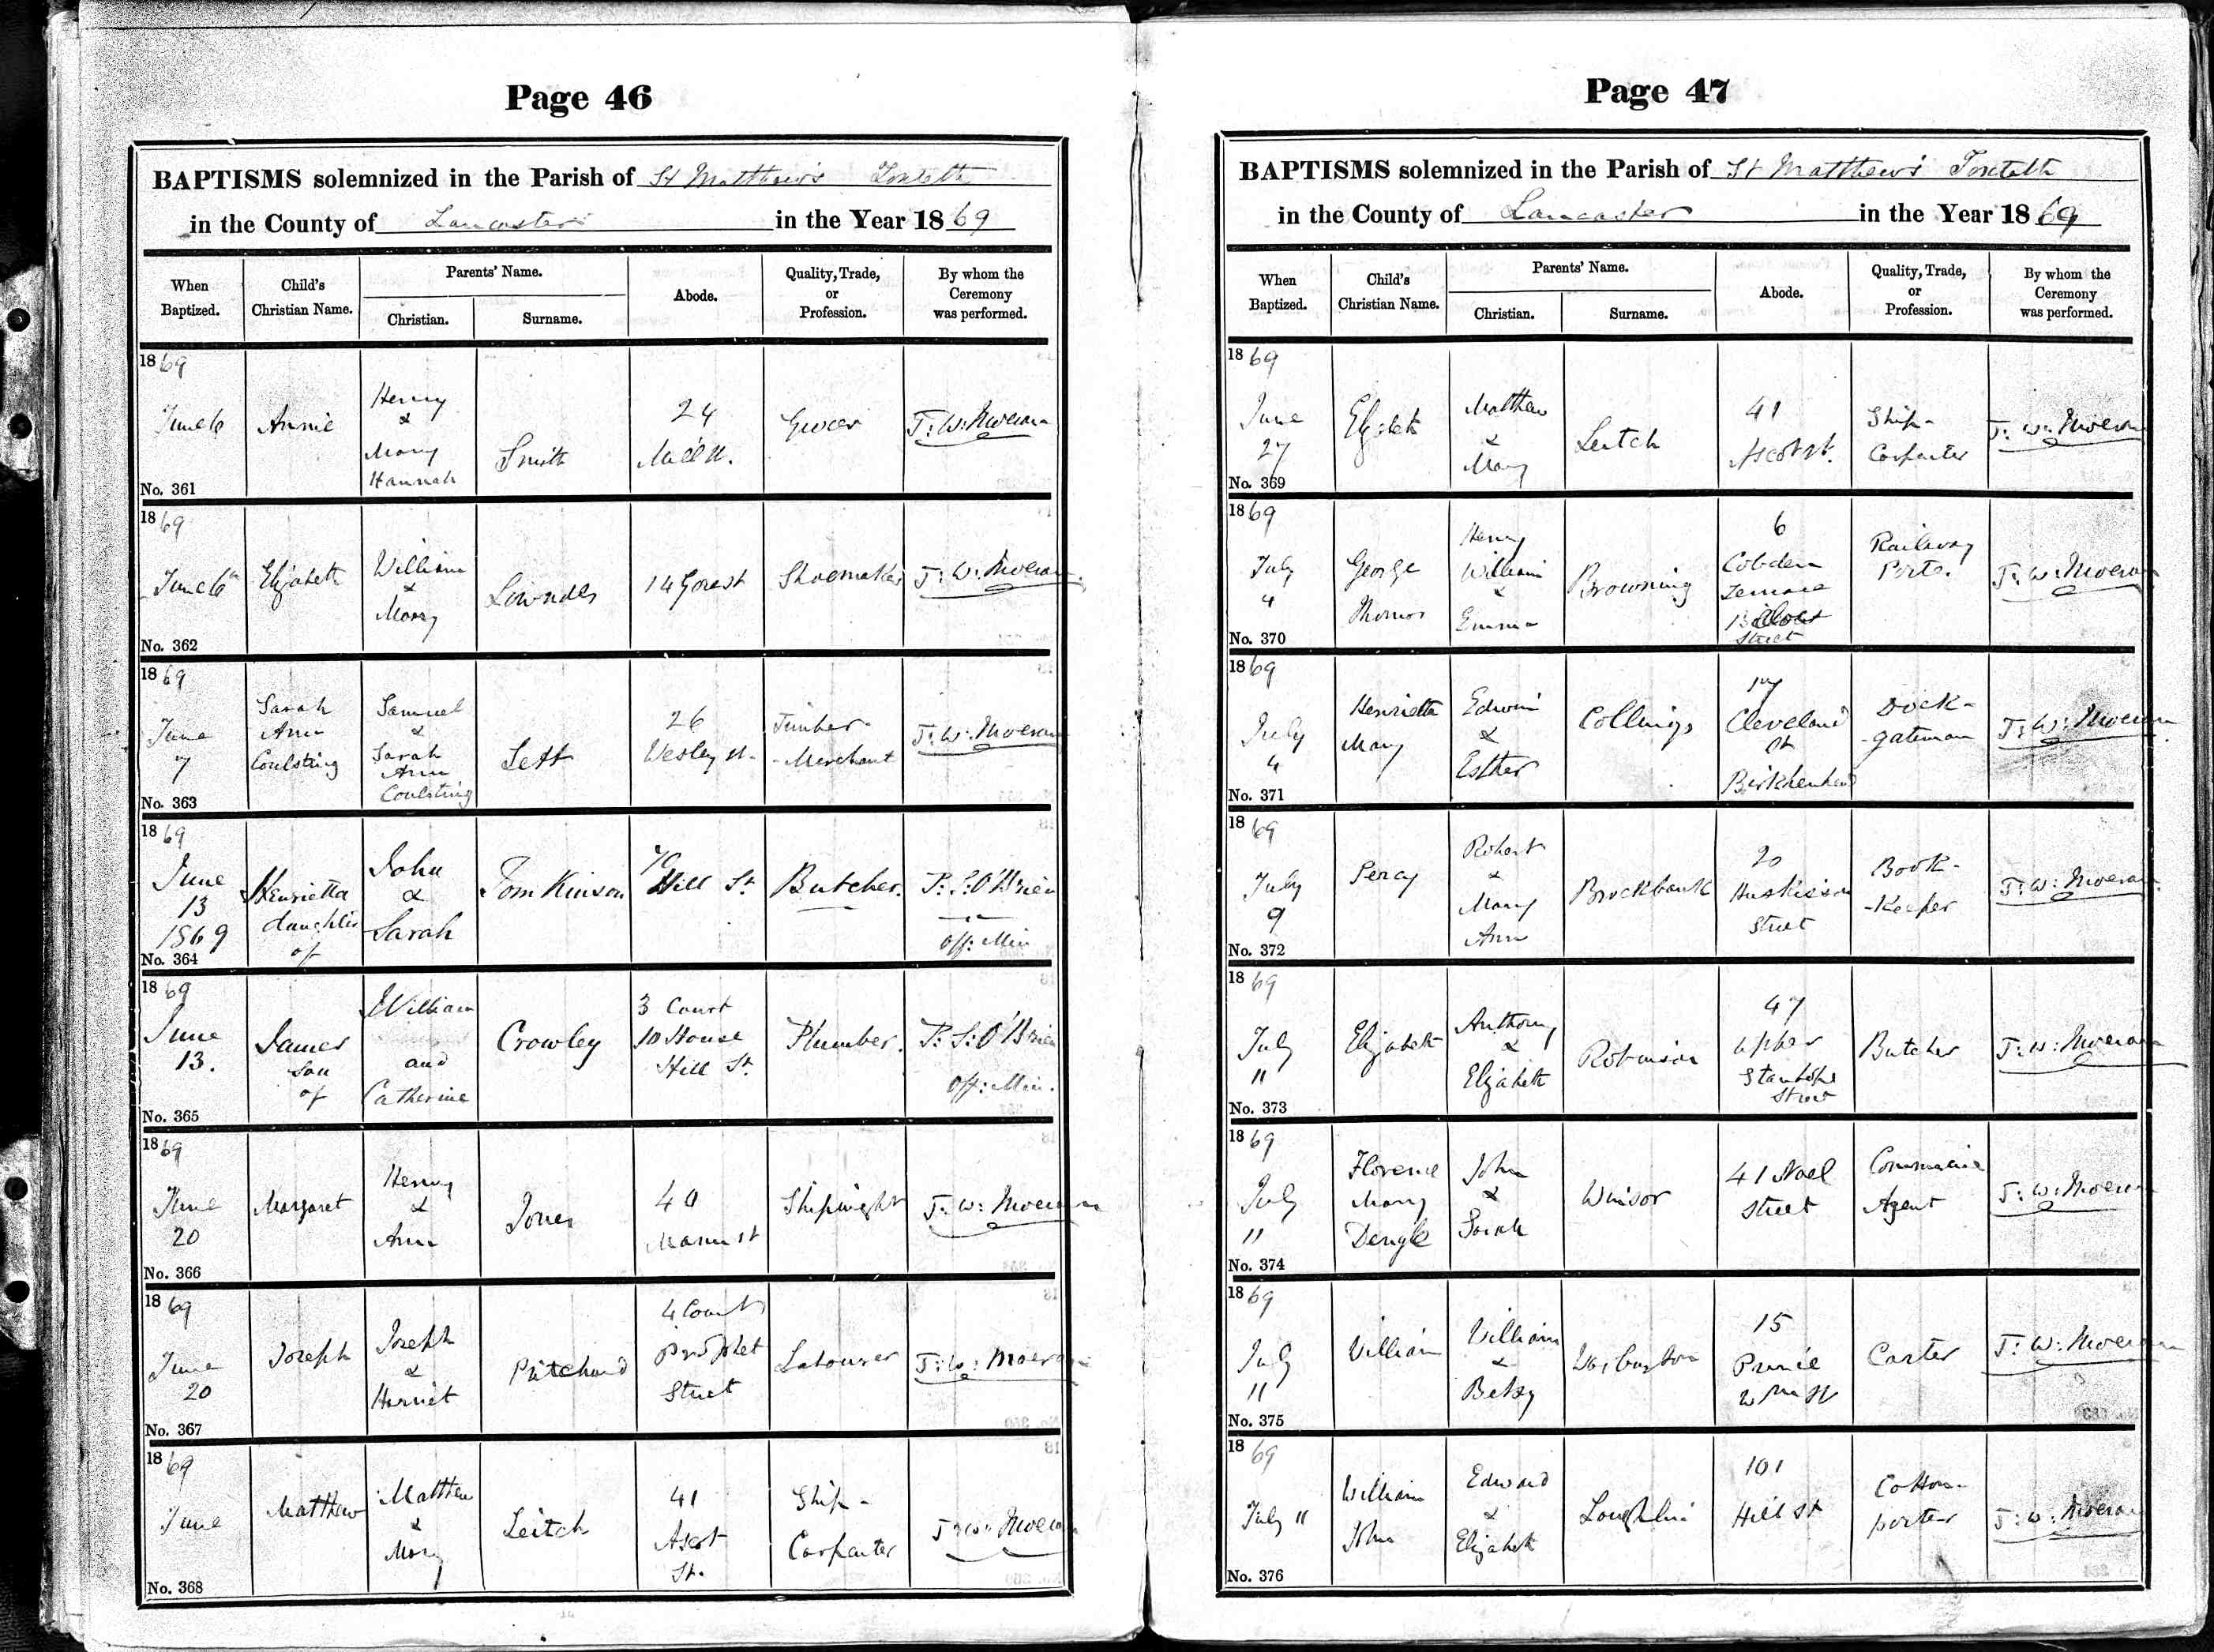 Page 46
BAPTISMS solemnized in the Parish of St Matthew's Toxteth
in the County of Lancaster in the Year 1869
When Baptized. Child's Christian Name. Parents' Name. Christian. Surname. Abode. Quality, Trade, or Profession. By whom the Ceremony was performed.
1869
June 6
Annie
Henry
&
Mary
Hannah
Smith
24
Mill St.
Grocer
J: W: Moeran
No. 361
1869
June 6th
Elizabeth
William
&
Mary
Lowndes
14 Gore St
Shoemaker
J: W: Moeran
No. 362
1869
June
7
Sarah
Ann
Coulsting
Samuel
&
Sarah
Ann
Coulsting
Lett
26
Wesley St.
Timber-
-Merchant
J: W: Moeran
No. 363
1869
June
13
1869
Henrietta
daughter
of
John
&
Sarah
Tomkinson
70
Hill St
Butcher.
P: S: O'Brien
Off: Min
No. 364
1869
June
13.
James
Son
of
William
and
Catherine
Crowley
3 Court
10 House
Hill St.
Plumber.
P: S: O'Brien
Off: Min.
No. 365
1869
June
20
Margaret
Henry
&
Ann
Jones
40
St
Shipwright
J: W: Moeran
No. 366
1869
June
20
Joseph
Joseph
&
Harriet
Pritchard
4 Court
Prophet
Street
Labourer
J: W: Moeran
No. 367
1869
June
Matthew
Matthew
&
Mary
Leitch
41
Ascot
St.
Ship-
Carpenter
J: W: Moeran
No. 368
Page 47
BAPTISMS solemnized in the Parish of St Matthew's Toxteth
in the County of Lancaster in the Year 1869
When Baptized. Child's Christian Name. Parents' Name. Christian. Surname. Abode. Quality, Trade, or Profession. By whom the Ceremony was performed.
1869
June
27
Elizabeth
Matthew
&
Mary
Leitch
41
Ascot St.
Ship-
Carpenter
J: W: Moeran
No. 369
1869
July
4
George
Thomas
Henry
William
&
Emma
Browning
6
Cobden
Terrace
Street
Railway
Porter
J: W: Moeran
No. 370
1869
July
4
Henrietta
Mary
Edwin
&
Esther
Collings
17
Cleveland
St
Birkenhead
Dock-
-gateman
J: W: Moeran
No. 371
1869
July
9
Percy
Robert
&
Mary
Ann
Brockbank
20
Huskisson
Street
Book-
-Keeper
J: W: Moeran
No. 372
1869
July
11
Elizabeth
Anthony
&
Elizabeth
Robinson
47
Upper
Stanhope
Street
Butcher
J: W: Moeran
No. 373
1869
July
11
Florence
Mary
John
&
Sarah
Winsor
41 Noel
Street
Agent
J: W: Moeran
No. 374
1869
July
11
William
William
&
Betsy
Warburton
15
Prince
Wm St
Carter
J: W: Moeran
No. 375
1869
July 11
William
John
Edward
&
Elizabeth
Loughlin
101
Hill St
Cotton-
porter
J: W: Moeran
No. 376